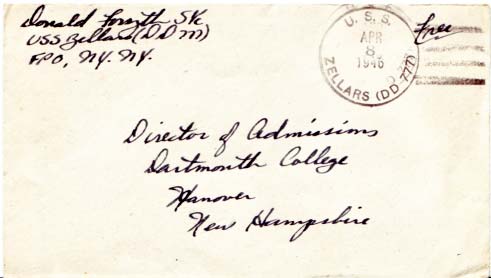 Donald Forsyth S1/c
USS Zellars (DD 777)
FPO, NY. NY.
U. S. S.
APR
8
1946
ZELLARS (DD-777)
Free
Director of Admissions
Dartmouth College
Hanover
New Hampshire